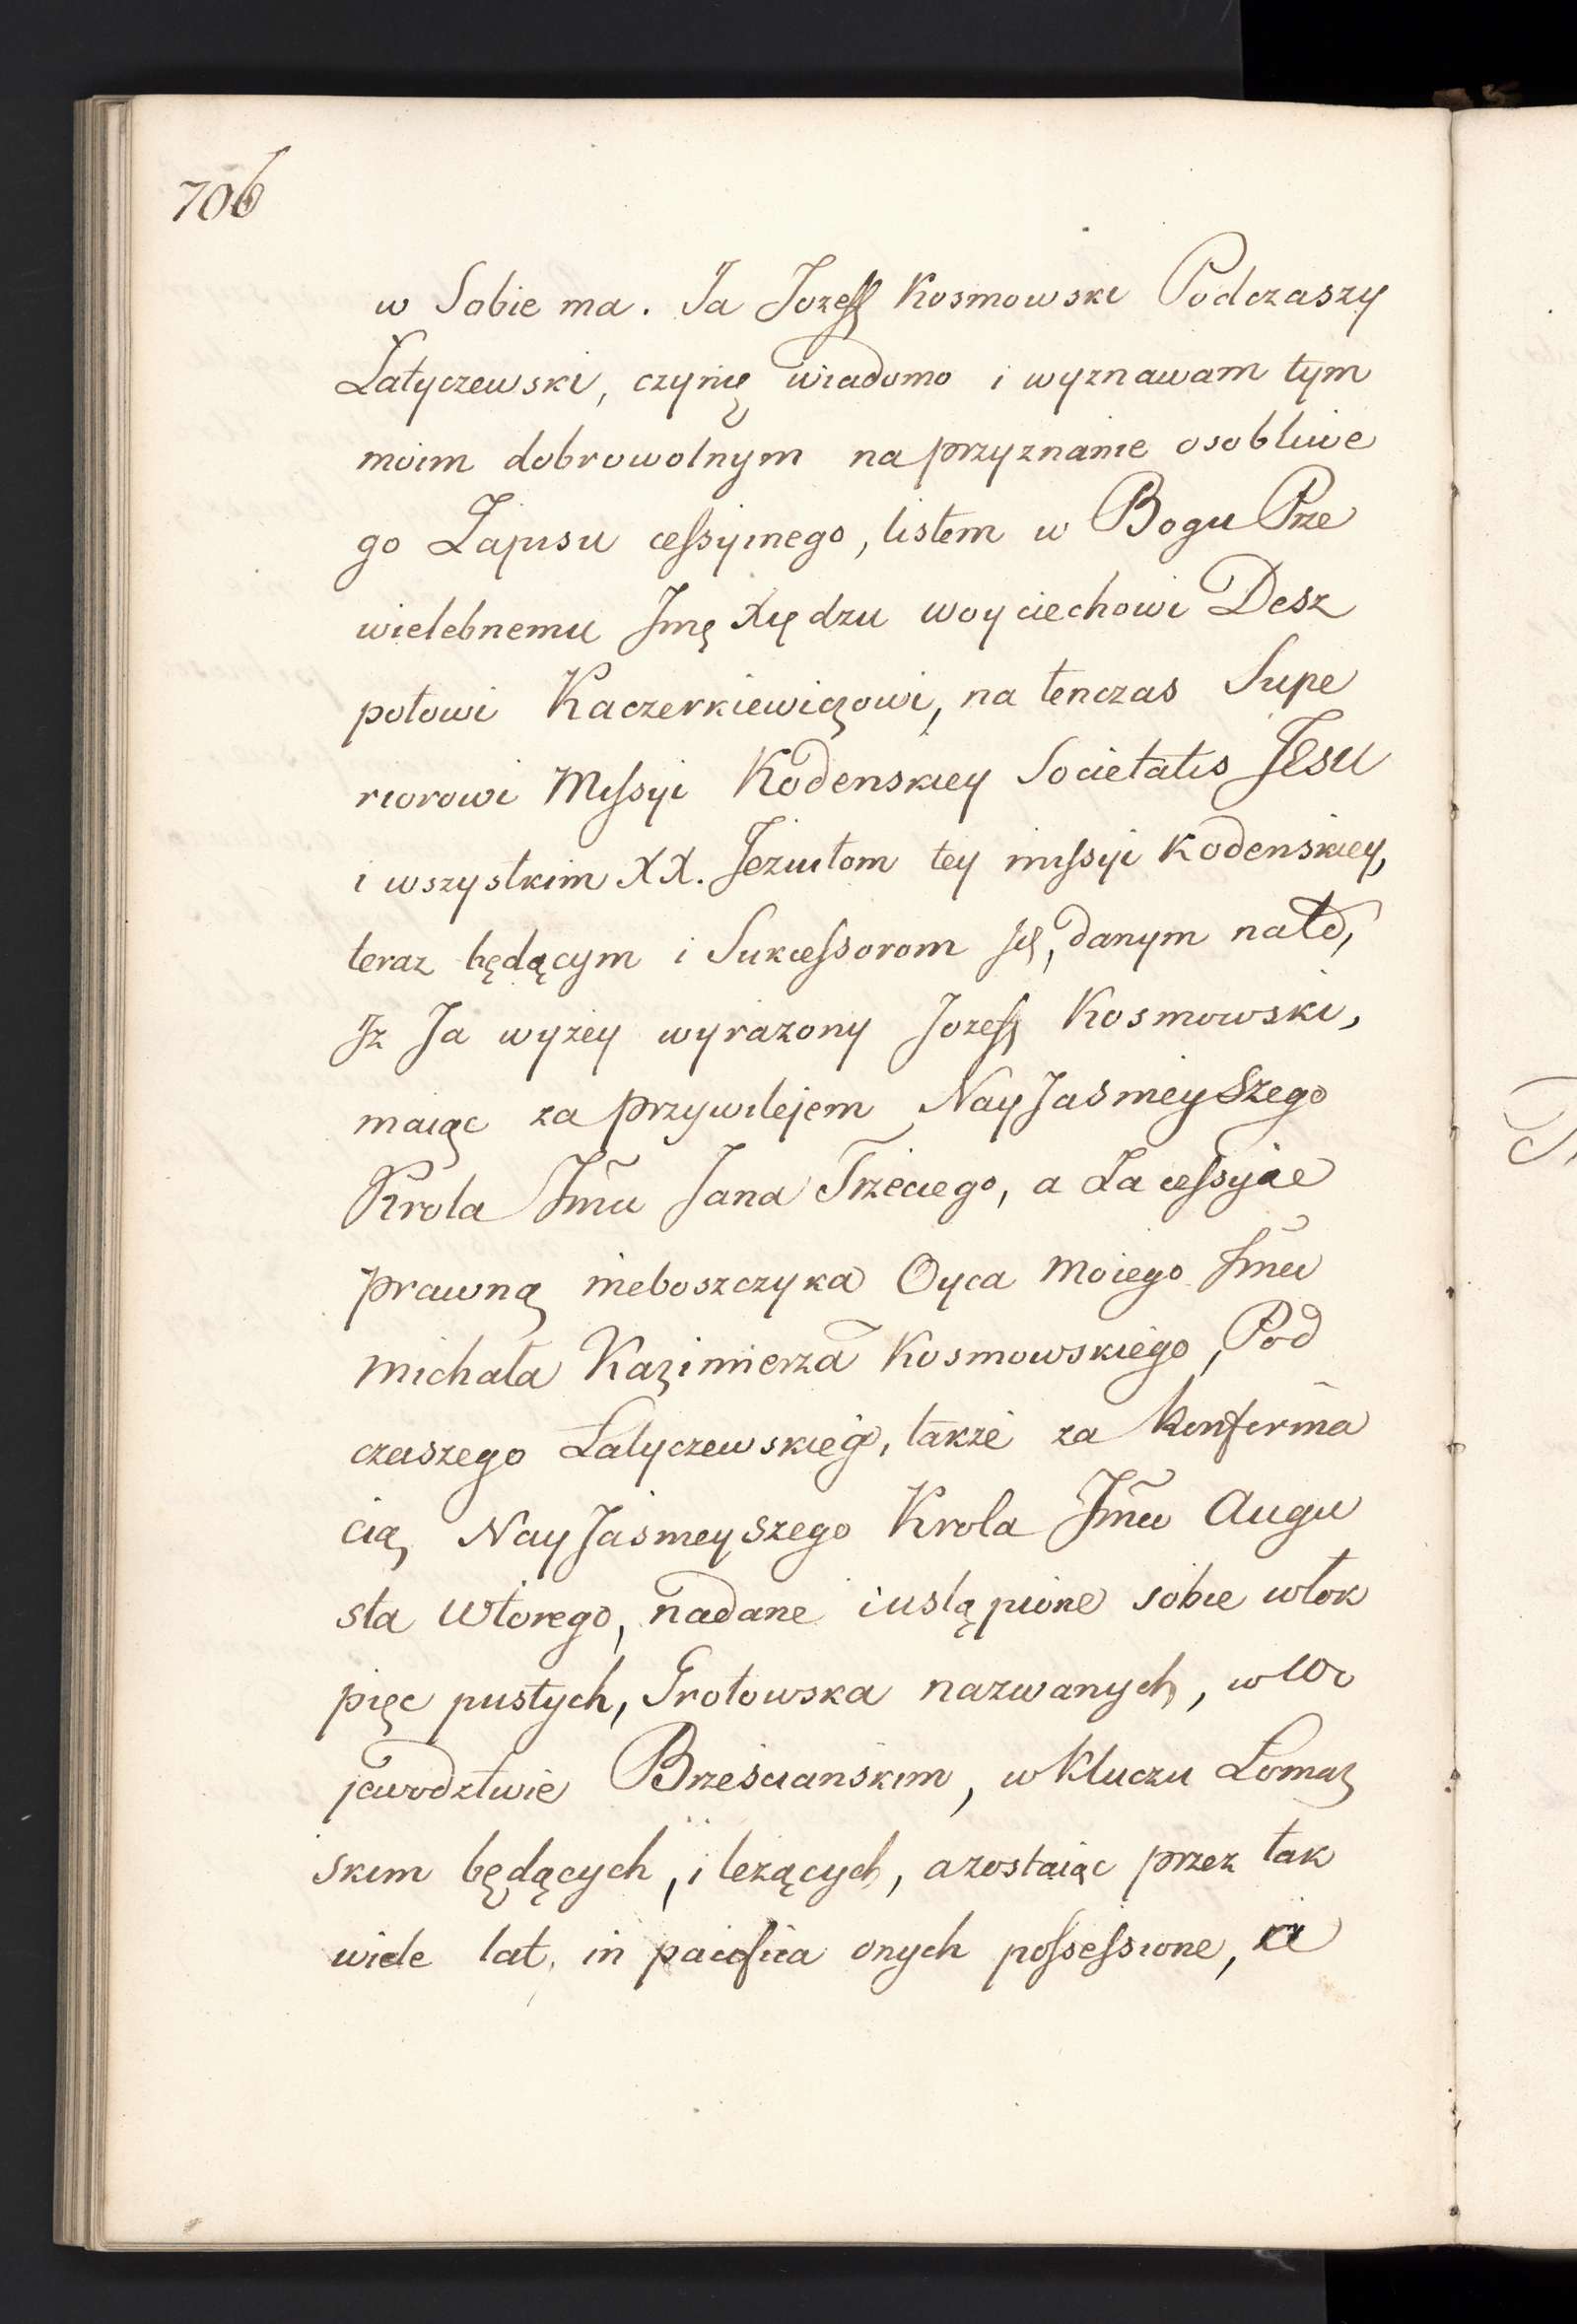 706
w Sobie ma. Ja Jozeff Kosmowski Podczaszy
Łatyczewski, czynię wiadomo i wyznawam tym
moim dobrowolnym na przyznanie osobliwe
go Zapisu cessyinego, listem w Bogu Prze
wielebnemu Jmę Xiędzu woyciechowi Desz
potowi Kaczerkiewiczowi, na tenczas Supe
riorowi Missyi Kodenskiey Societatis Jesu
i wszystkim XX. Jezuitom tey missyi Kodenskiey,
teraz będącym i Sukcessorom Jch, danym na to,
Jz Ja wyzey wyrazony Jozeff Kosmowski,
maiąc za przywilejem NayJasnieyszego
Krola Jm̃u Jana Trzeciego, a Za cessyae
prawną nieboszczyka Oyca Moiego Jm̃u
Michała Kazimierza Kosmowskiego, Pod
czaszego Łatyczewskieg̃o, takze za konfirma
cią, NayJasnieyszego Krola Jm̃u Augu
sta Wtorego, nadane i ustąpione sobie włok
pięc pustych, Grotowska nazwanych, w Wo
jewodztwie Brześcianskim, w Kluczu Łomaz
skim będących, i lezących, a zostaiąc przez tak
wiele lat, in pacifica onych possessione,